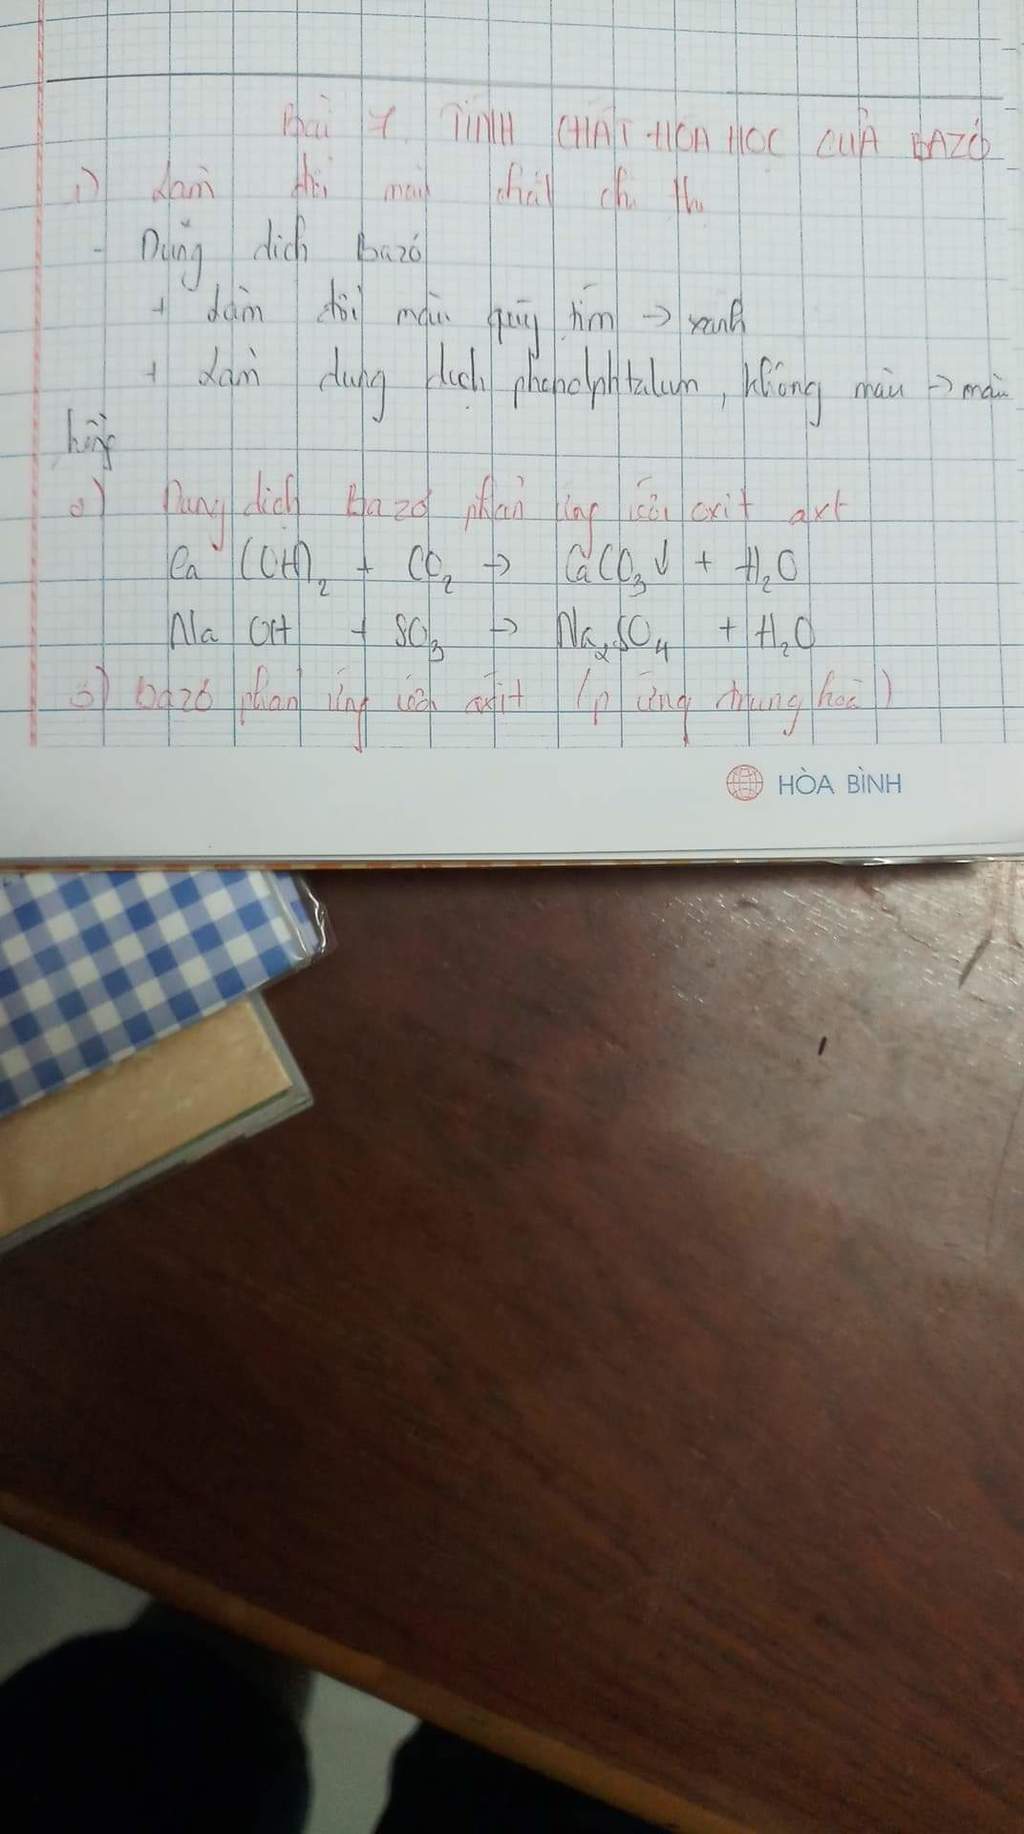 Bài 7. TÍNH CHẤT HÓA HỌC CỦA BAZƠ
1) Làm đổi màu chất chỉ thị
- Dung dịch Bazơ
+ Làm đổi màu quỳ tím → xanh
+ Làm dung dịch phenolphtalein, không màu → màu
hồng
2) Dung dịch Bazơ phản ứng với oxit axt
Ca(OH)₂ + CO₂ → CaCO₃↓ + H₂O
NaOH + SO₃ → Na₂SO₄ + H₂O
3) bazơ phản ứng với axit (p ứng trung hoà)
HÒA BÌNH